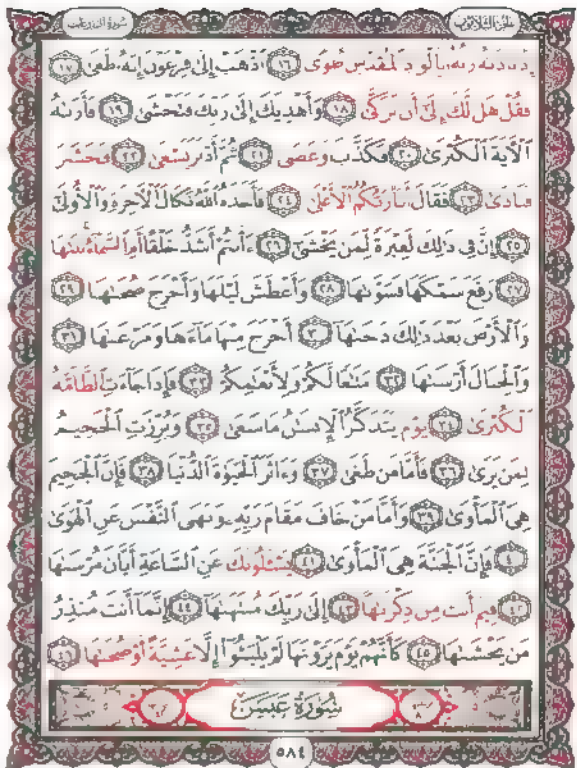 سورة النازعات الجزء الثلاثون
إِذْ نَادَىٰهُ رَبُّهُۥ بِٱلْوَادِ ٱلْمُقَدَّسِ طُوًى ١٦ ٱذْهَبْ إِلَىٰ فِرْعَوْنَ إِنَّهُۥ طَغَىٰ ١٧
فَقُلْ هَل لَّكَ إِلَىٰٓ أَن تَزَكَّىٰ ١٨ وَأَهْدِيَكَ إِلَىٰ رَبِّكَ فَتَخْشَىٰ ١٩ فَأَرَىٰهُ
ٱلْءَايَةَ ٱلْكُبْرَىٰ ٢٠ فَكَذَّبَ وَعَصَىٰ ٢١ ثُمَّ أَدْبَرَ يَسْعَىٰ ٢٢ فَحَشَرَ
فَنَادَىٰ ٢٣ فَقَالَ أَنَا۠ رَبُّكُمُ ٱلْأَعْلَىٰ ٢٤ فَأَخَذَهُ ٱللَّهُ نَكَالَ ٱلْءَاخِرَةِ وَٱلْأُولَىٰٓ
٢٥ إِنَّ فِى ذَٰلِكَ لَعِبْرَةً لِّمَن يَخْشَىٰٓ ٢٦ ءَأَنتُمْ أَشَدُّ خَلْقًا أَمِ ٱلسَّمَآءُ ۚ بَنَىٰهَا
٢٧ رَفَعَ سَمْكَهَا فَسَوَّىٰهَا ٢٨ وَأَغْطَشَ لَيْلَهَا وَأَخْرَجَ ضُحَىٰهَا ٢٩
وَٱلْأَرْضَ بَعْدَ ذَٰلِكَ دَحَىٰهَآ ٣٠ أَخْرَجَ مِنْهَا مَآءَهَا وَمَرْعَىٰهَا ٣١
وَٱلْجِبَالَ أَرْسَىٰهَا ٣٢ مَتَٰعًا لَّكُمْ وَلِأَنْعَٰمِكُمْ ٣٣ فَإِذَا جَآءَتِ ٱلطَّآمَّةُ
ٱلْكُبْرَىٰ ٣٤ يَوْمَ يَتَذَكَّرُ ٱلْإِنسَٰنُ مَا سَعَىٰ ٣٥ وَبُرِّزَتِ ٱلْجَحِيمُ
لِمَن يَرَىٰ ٣٦ فَأَمَّا مَن طَغَىٰ ٣٧ وَءَاثَرَ ٱلْحَيَوٰةَ ٱلدُّنْيَا ٣٨ فَإِنَّ ٱلْجَحِيمَ
هِىَ ٱلْمَأْوَىٰ ٣٩ وَأَمَّا مَنْ خَافَ مَقَامَ رَبِّهِۦ وَنَهَى ٱلنَّفْسَ عَنِ ٱلْهَوَىٰ
٤٠ فَإِنَّ ٱلْجَنَّةَ هِىَ ٱلْمَأْوَىٰ ٤١ يَسْـَٔلُونَكَ عَنِ ٱلسَّاعَةِ أَيَّانَ مُرْسَىٰهَا
٤٢ فِيمَ أَنتَ مِن ذِكْرَىٰهَآ ٤٣ إِلَىٰ رَبِّكَ مُنتَهَىٰهَآ ٤٤ إِنَّمَآ أَنتَ مُنذِرُ
مَن يَخْشَىٰهَا ٤٥ كَأَنَّهُمْ يَوْمَ يَرَوْنَهَا لَمْ يَلْبَثُوٓا۟ إِلَّا عَشِيَّةً أَوْ ضُحَىٰهَا ٤٦
سُورَةُ عَبَسَ
٥٨٤